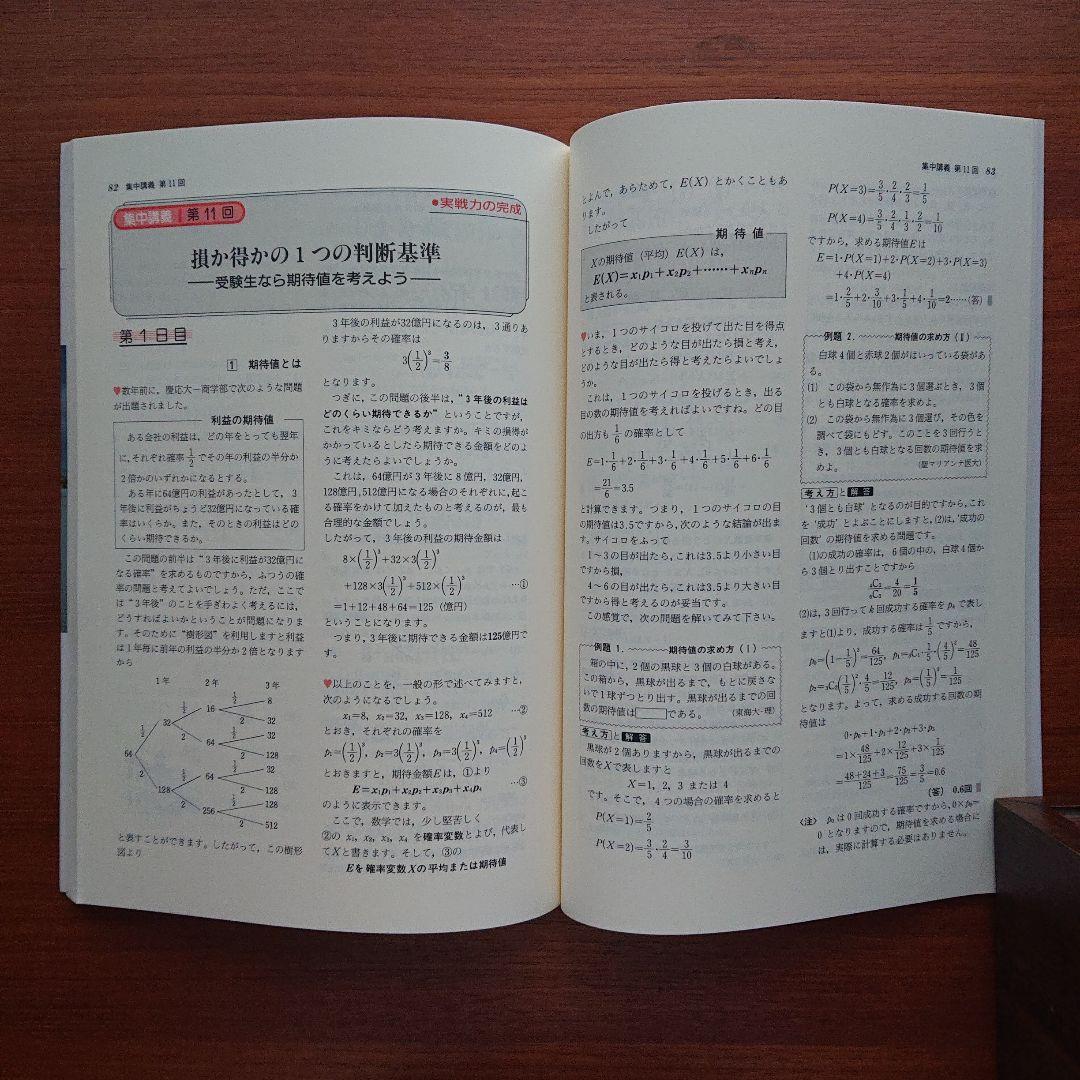 82 集中講義 第11回
集中講義 第11回
●実戦力の完成
損か得かの1つの判断基準
——受験生なら期待値を考えよう——
第1日目
1 期待値とは
♥数年前に,慶応大−商学部で次のような問題
が出題されました。
利益の期待値
ある会社の利益は,どの年をとっても翌年
に,それぞれ確率1/2でその年の利益の半分か
2倍かのいずれかになるとする。
ある年に64億円の利益があったとして,3
年後に利益がちょうど32億円になっている確
率はいくらか。また,そのときの利益はどの
くらい期待できるか。
この問題の前半は“3年後に利益が32億円に
なる確率”を求めるものですから,ふつうの確
率の問題と考えてよいでしょう。ただ,ここで
は“3年後”のことを手ぎわよく考えるには,
どうすればよいかということが問題になりま
す。そのために“樹形図”を利用しますと利益
は1年毎に前年の利益の半分か2倍となります
から
1年 2年 3年
64
1/2 32
2 128
1/2 16
2 64
1/2 64
2 256
1/2 8
2 32
1/2 32
2 128
1/2 32
2 128
1/2 128
2 512
と表すことができます。したがって,この樹形
図より
3年後の利益が32億円になるのは,3通りあ
りますからその確率は
3(1/2)³=3/8
となります。
つぎに,この問題の後半は,“3年後の利益は
どのくらい期待できるか”ということですが,
これをキミならどう考えますか。キミの損得が
かかっているとしたら期待できる金額をどのよ
うに考えたらよいでしょうか。
これは,64億円が3年後に8億円,32億円,
128億円,512億円になる場合のそれぞれに,起こ
る確率をかけて加えたものと考えるのが,最も
合理的な金額でしょう。
したがって,3年後の利益の期待金額は
8×(1/2)³+32×3(1/2)³
+128×3(1/2)³+512×(1/2)³ …①
=1+12+48+64=125(億円)
ということになります。
つまり,3年後に期待できる金額は125億円で
す。
♥以上のことを,一般の形で述べてみますと,
次のようになるでしょう。
x₁=8, x₂=32, x₃=128, x₄=512 …②
とおき,それぞれの確率を
p₁=(1/2)³, p₂=3(1/2)³, p₃=3(1/2)³, p₄=(1/2)³
とおきますと,期待金額Eは,①より
E=x₁p₁+x₂p₂+x₃p₃+x₄p₄ …③
のように表示できます。
ここで,数学では,少し堅苦しく
②の x₁, x₂, x₃, x₄ を確率変数とよび,代表し
てXと書きます。そして,③の
Eを確率変数Xの平均または期待値
集中講義 第11回 83
とよんで,あらためて,E(X)とかくこともあ
ります。
したがって
期待値
Xの期待値(平均)E(X)は,
E(X)=x₁p₁+x₂p₂+……+xₙpₙ
と表される。
♥いま,1つのサイコロを投げて出た目を得点
とするとき,どのような目が出たら損と考え,
どのような目が出たら得と考えたらよいでしょ
うか。
これは,1つのサイコロを投げるとき,出る
目の数の期待値を考えればよいですね。どの目
の出方も1/6の確率として
E=1·1/6+2·1/6+3·1/6+4·1/6+5·1/6+6·1/6
=21/6=3.5
と計算できます。つまり,1つのサイコロの目
の期待値は3.5ですから,次のような結論が出ま
す。サイコロをふって
1〜3の目が出たら,これは3.5より小さい目
ですから損,
4〜6の目が出たら,これは3.5より大きい目
ですから得と考えるのが妥当です。
この感覚で,次の問題を解いてみて下さい。
例題 1. 期待値の求め方(Ⅰ)
箱の中に,2個の黒球と3個の白球がある。
この箱から,黒球が出るまで,もとに戻さな
いで1球ずつとり出す。黒球が出るまでの回
数の期待値は□である。 (東海大-理)
考え方と解答
黒球が2個ありますから,黒球が出るまでの
回数をXで表しますと
X=1, 2, 3 または 4
です。そこで,4つの場合の確率を求めると
P(X=1)=2/5
P(X=2)=3/5·2/4=3/10
P(X=3)=3/5·2/4·2/3=1/5
P(X=4)=3/5·2/4·1/3·2/2=1/10
ですから,求める期待値Eは
E=1·P(X=1)+2·P(X=2)+3·P(X=3)
+4·P(X=4)
=1·2/5+2·3/10+3·1/5+4·1/10=2……(答)
例題 2. 期待値の求め方(Ⅱ)
白球4個と赤球2個がはいっている袋があ
る。
(1) この袋から無作為に3個選ぶとき,3個
とも白球となる確率を求めよ。
(2) この袋から無作為に3個選び,その色を
調べて袋にもどす。このことを3回行うと
き,3個とも白球となる回数の期待値を求
めよ。 (聖マリアンナ医大)
考え方と解答
‘3個とも白球’となるのが目的ですから,これ
を‘成功’とよぶことにしますと,(2)は,‘成功の
回数’の期待値を求める問題です。
(1)の成功の確率は,6個の中の,白球4個か
ら3個とり出すことですから
₄C₃/₆C₃=4/20=1/5
(2)は,3回行ってk回成功する確率をpₖで表し
ますと(1)より,成功する確率は1/5ですから,
p₀=(1−1/5)³=64/125, p₁=₃C₁·1/5·(4/5)²=48/125
p₂=₃C₂(1/5)²·4/5=12/125, p₃=(1/5)³=1/125
となります。よって,求める成功する回数の期
待値は
0·p₀+1·p₁+2·p₂+3·p₃
=1×48/125+2×12/125+3×1/125
=48+24+3/125=75/125=3/5=0.6
(答) 0.6回
〈注〉 p₀は0回成功する確率ですから,0×p₀=
0となりますので,期待値を求める場合に
は,実際に計算する必要はありません。